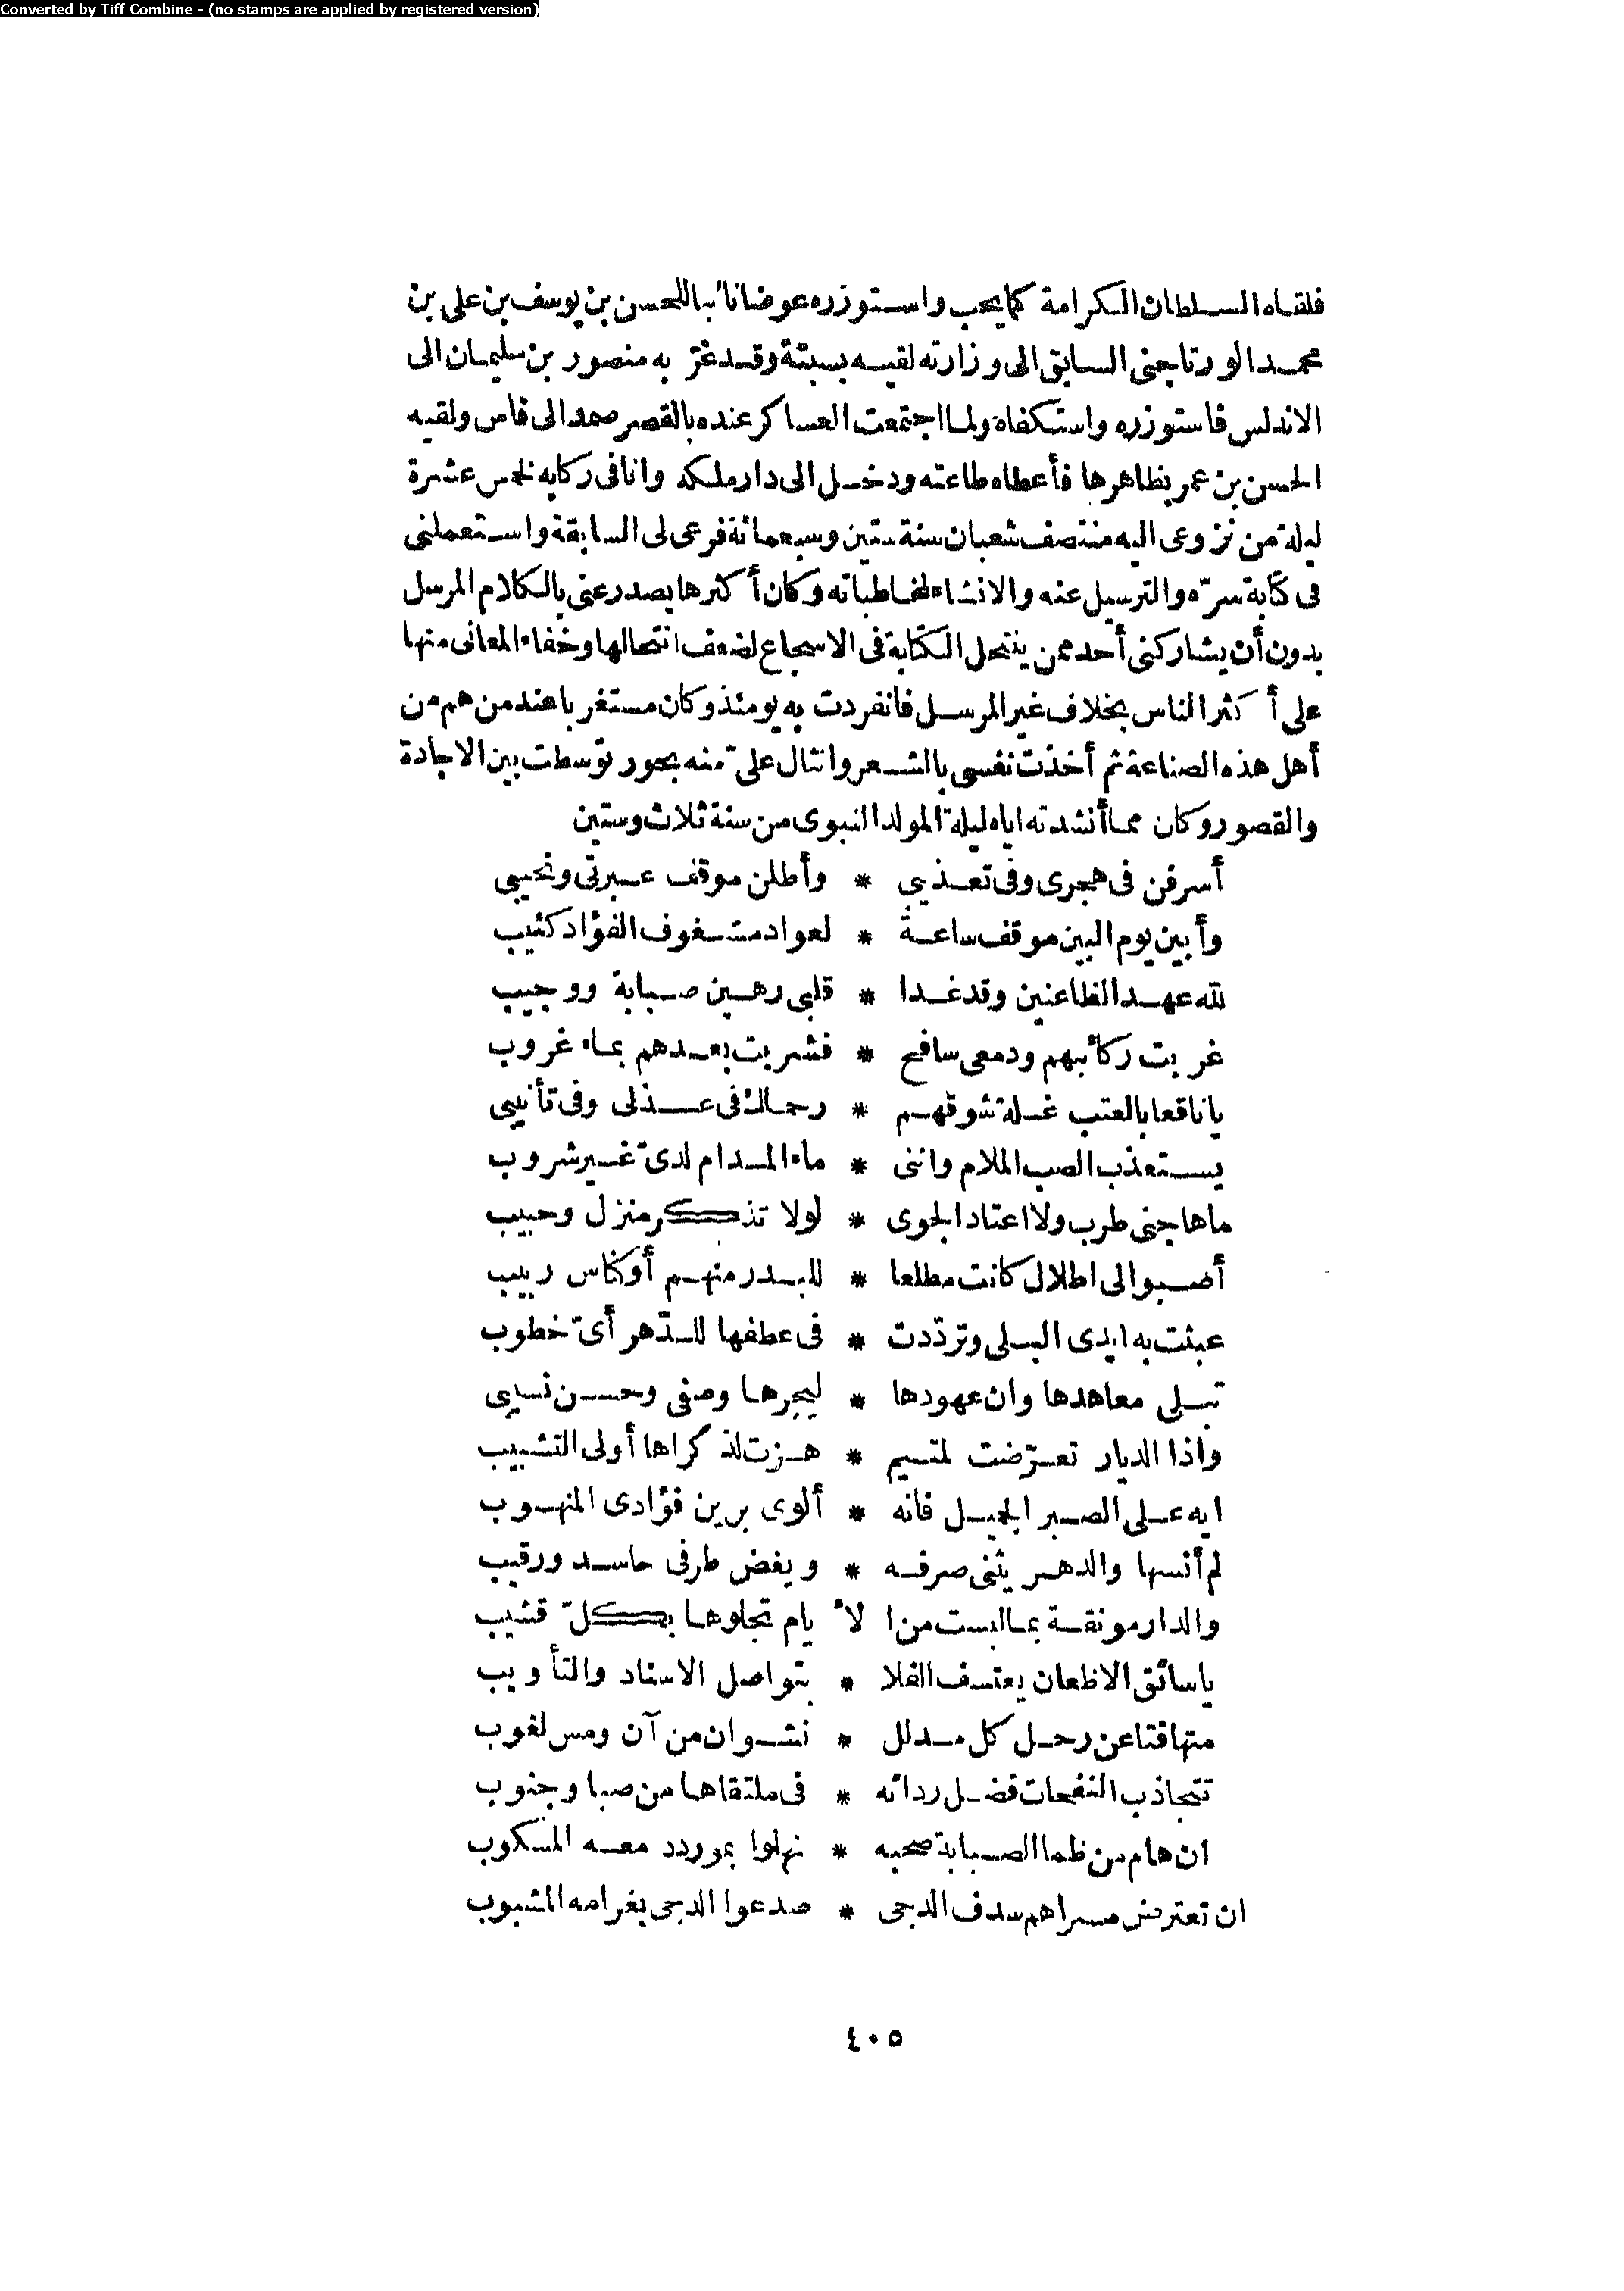 Converted by Tiff Combine - (no stamps are applied by registered version)
فلقاه السلطان الكرامة كما يحب واستوزره عوضا نائبا للحسن بن يوسف بن على بن
محمد الورتاجنى السابق الى وزارته لقيه بسبتة وقد غرّ به منصور بن سليمان الى
الاندلس فاستوزره واستكفاه ولما اجتمعت العساكر عنده بالقصر صمد الى فاس ولقيه
الحسن بن عمر بظاهرها فأعطاه طاعته ودخل الى دار ملكه وانا فى ركابه لخمس عشرة
ليلة من نزوعى اليه منتصف شعبان سنة ستين وسبعمائة فرعى لى السابقة واستعملنى
فى كتابة سرّه والترسيل عنه والانشاء لمخاطباته وكان أكثرها يصدر عنى بالكلام المرسل
بدون أن يشاركنى أحد ممن ينتحل الكتابة فى الاسجاع لضعف انتحالها وخفاء المعانى منها
على أكثر الناس بخلاف غير المرسل فانفردت به يومئذ وكان مستغربا عند من هم من
أهل هذه الصناعة ثم أخذت نفسى بالشعر وانثال علىّ منه بحور توسطت بين الاجادة
والقصور وكان مما أنشدته اياه ليلة المولد النبوى من سنة ثلاث وستين
أسرفن فى هجرى وفى تعذيبى * وأطلن موقف عبرتى ونحيبى
وأبين يوم البين موقف ساعة * لعواد مشغوف الفؤاد كئيب
لله عهد الظاعنين وقد غدا * قلبى رهين صبابة ووجيب
غربت ركائبهم ودمعى سافح * فشربت بعدهم بماء غروب
ياناقعا بالعتب غلة شوقهم * رحماك فى عذلى وفى تأنيبى
يستعذب الصب الملام واننى * ماء المدام لدىّ غير شروب
ما هاجنى طرب ولا اعتاد الجوى * لولا تذكر منزل وحبيب
أصبوا الى اطلال كانت مطلعا * للبدر منهم أو كناس ربيب
عبثت به ايدى البلى وتردّدت * فى عطفها للدّهر أىّ خطوب
تبلى معاهدها وان عهودها * ليجرها وصفى وحسن نسيبى
واذا الديار تعرّضت لمتيم * هزت لذكراها أولى التشبيب
ايه على الصبر الجميل فانه * ألوى برين فؤادى المنهوب
لم أنسها والدهر يثنى صرفه * ويغض طرفى حاسد ورقيب
والدار مونقة بما لبست من الأ يام تجلوها بكلّ قشيب
ياسائق الاظعان يعتسف الفلا * بتواصل الاسئاد والتأويب
متهافتا عن رحل كل مدلل * نشوان من آن ومس لغوب
تتجاذب النفحات فضل ردائه * فى ملتقاها من صبا وجنوب
ان هام من ظما الصبابة صحبه * نهلوا بمورد معه المسكوب
ان تعترض مسراهم سدف الدجى * صدعوا الدجى بغرامه المشبوب
٤٠٥